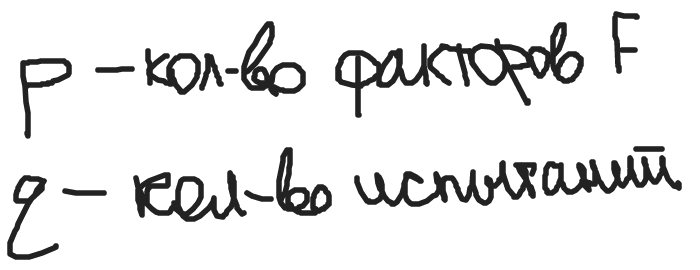 p – кол-во факторов F
q – кол-во испытаний